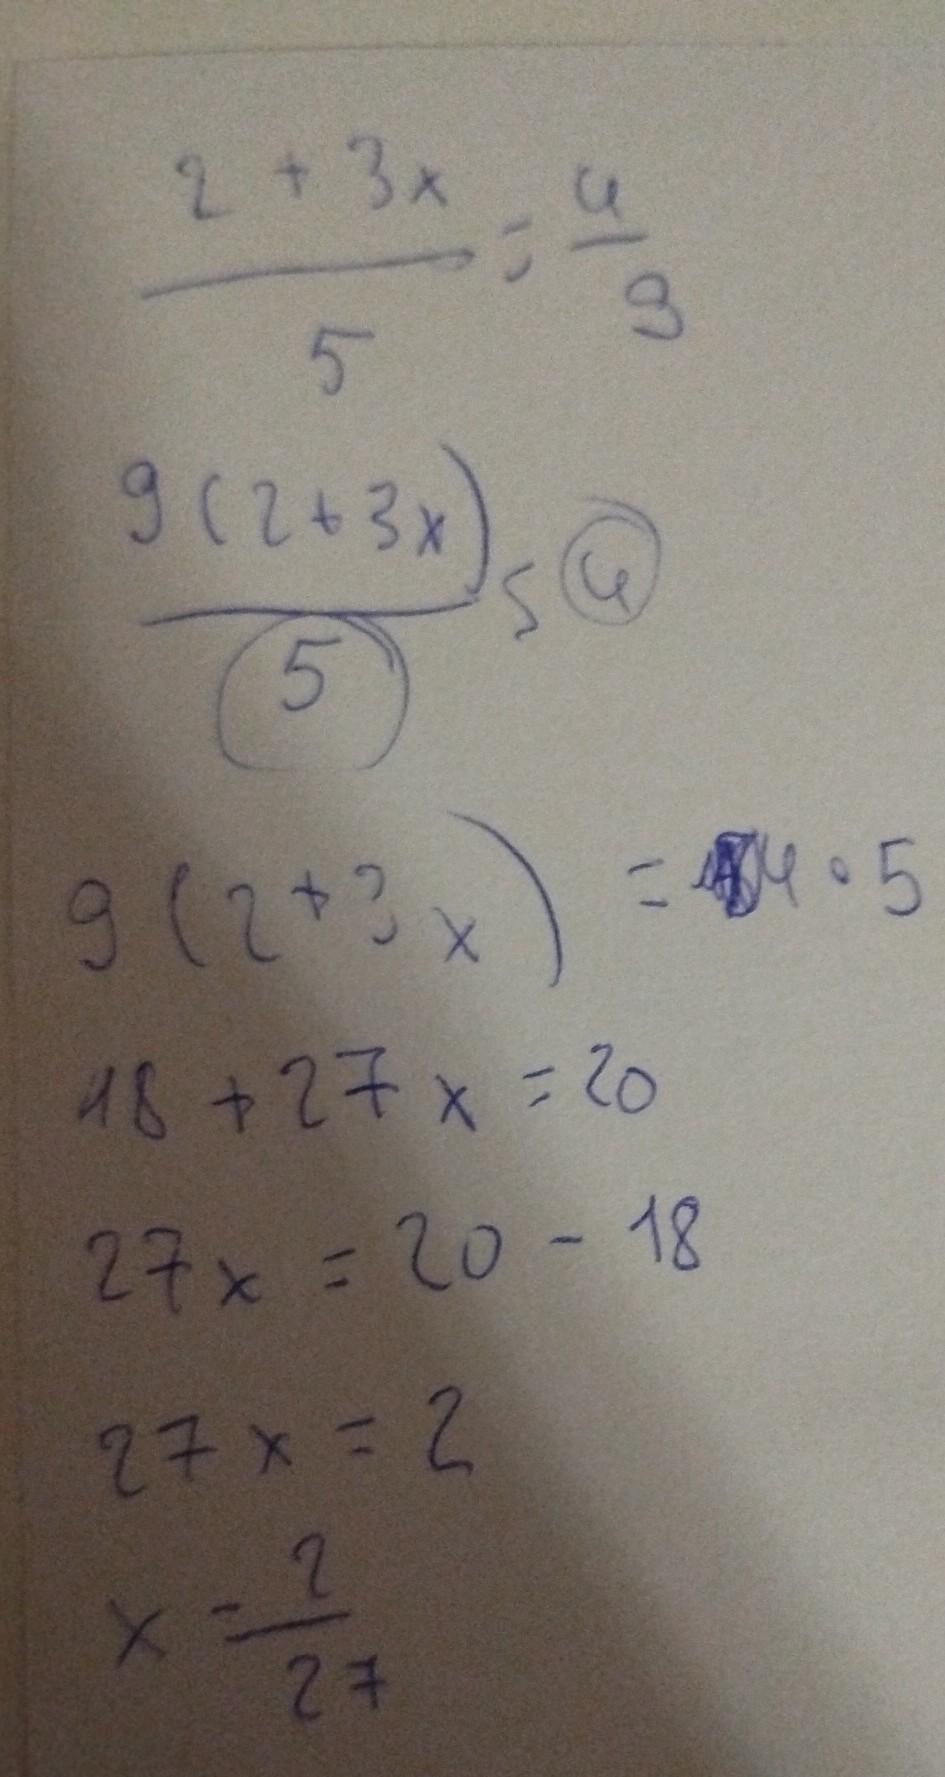 2 + 3x / 5 = 4 / 9
9(2+3x) / 5 = 4
9(2+3x) = 4·5
18 + 27x = 20
27x = 20 - 18
27x = 2
x = 2 / 27